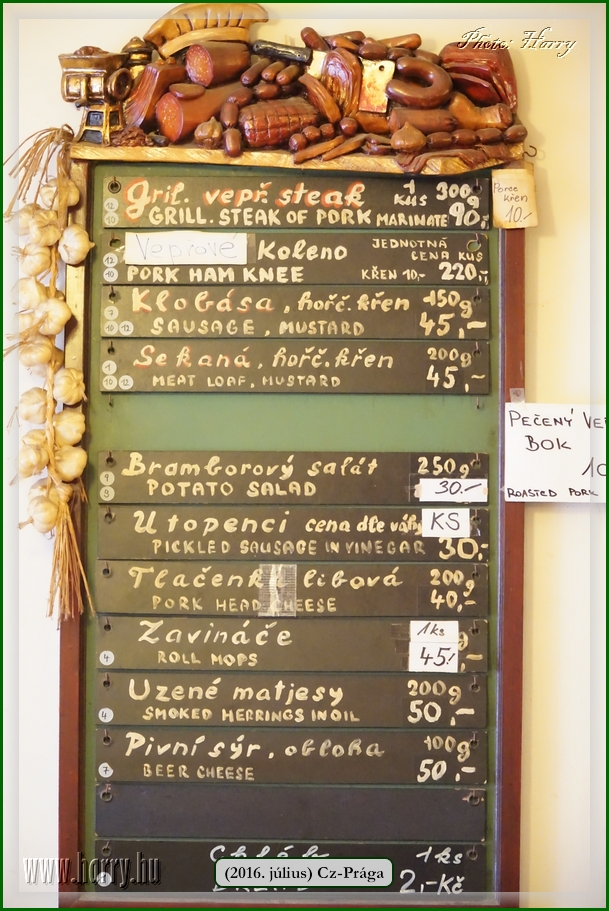 Photo: Harry
Gril. vepř. steak 1 kus 300g
GRILL. STEAK OF PORK MARINATE 90,-
12
10
Porce
křen
10,-
Vepřové Koleno JEDNOTNÁ CENA KUS
PORK HAM KNEE KŘEN 10,- 220,-
12
10
Klobása, hořč. křen 150g
SAUSAGE, MUSTARD 45,-
7
10 12
Sekaná, hořč. křen 200g
MEAT LOAF, MUSTARD 45,-
1
10 12
PEČENÝ VE
BOK
10
ROASTED PORK
Bramborový salát 250g
POTATO SALAD 30.-
9
8
Utopenci cena dle váhy KS
PICKLED SAUSAGE IN VINEGAR 30,-
Tlačenka libová 200g
PORK HEAD CHEESE 40,-
Zavináče 1ks
ROLL MOPS 45,-
4
Uzené matjesy 200g
SMOKED HERRINGS IN OIL 50,-
4
Pivní sýr, obloha 100g
BEER CHEESE 50,-
7
1ks
2,-Kč
www.harry.hu
(2016. július) Cz-Prága